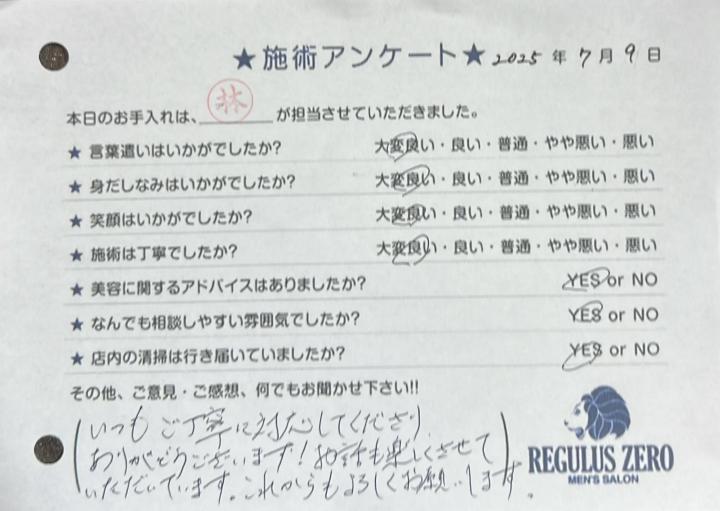 ★施術アンケート★ 2025年7月9日
本日のお手入れは、林が担当させていただきました。
★ 言葉遣いはいかがでしたか? 大変良い・良い・普通・やや悪い・悪い
★ 身だしなみはいかがでしたか? 大変良い・良い・普通・やや悪い・悪い
★ 笑顔はいかがでしたか? 大変良い・良い・普通・やや悪い・悪い
★ 施術は丁寧でしたか? 大変良い・良い・普通・やや悪い・悪い
★ 美容に関するアドバイスはありましたか? YES or NO
★ なんでも相談しやすい雰囲気でしたか? YES or NO
★ 店内の清掃は行き届いていましたか? YES or NO
その他、ご意見・ご感想、何でもお聞かせ下さい!!
いつもご丁寧に対応してくださり
ありがとうございます!お話も楽しくさせて
いただいています。これからもよろしくお願いします。
REGULUS ZERO
MEN'S SALON